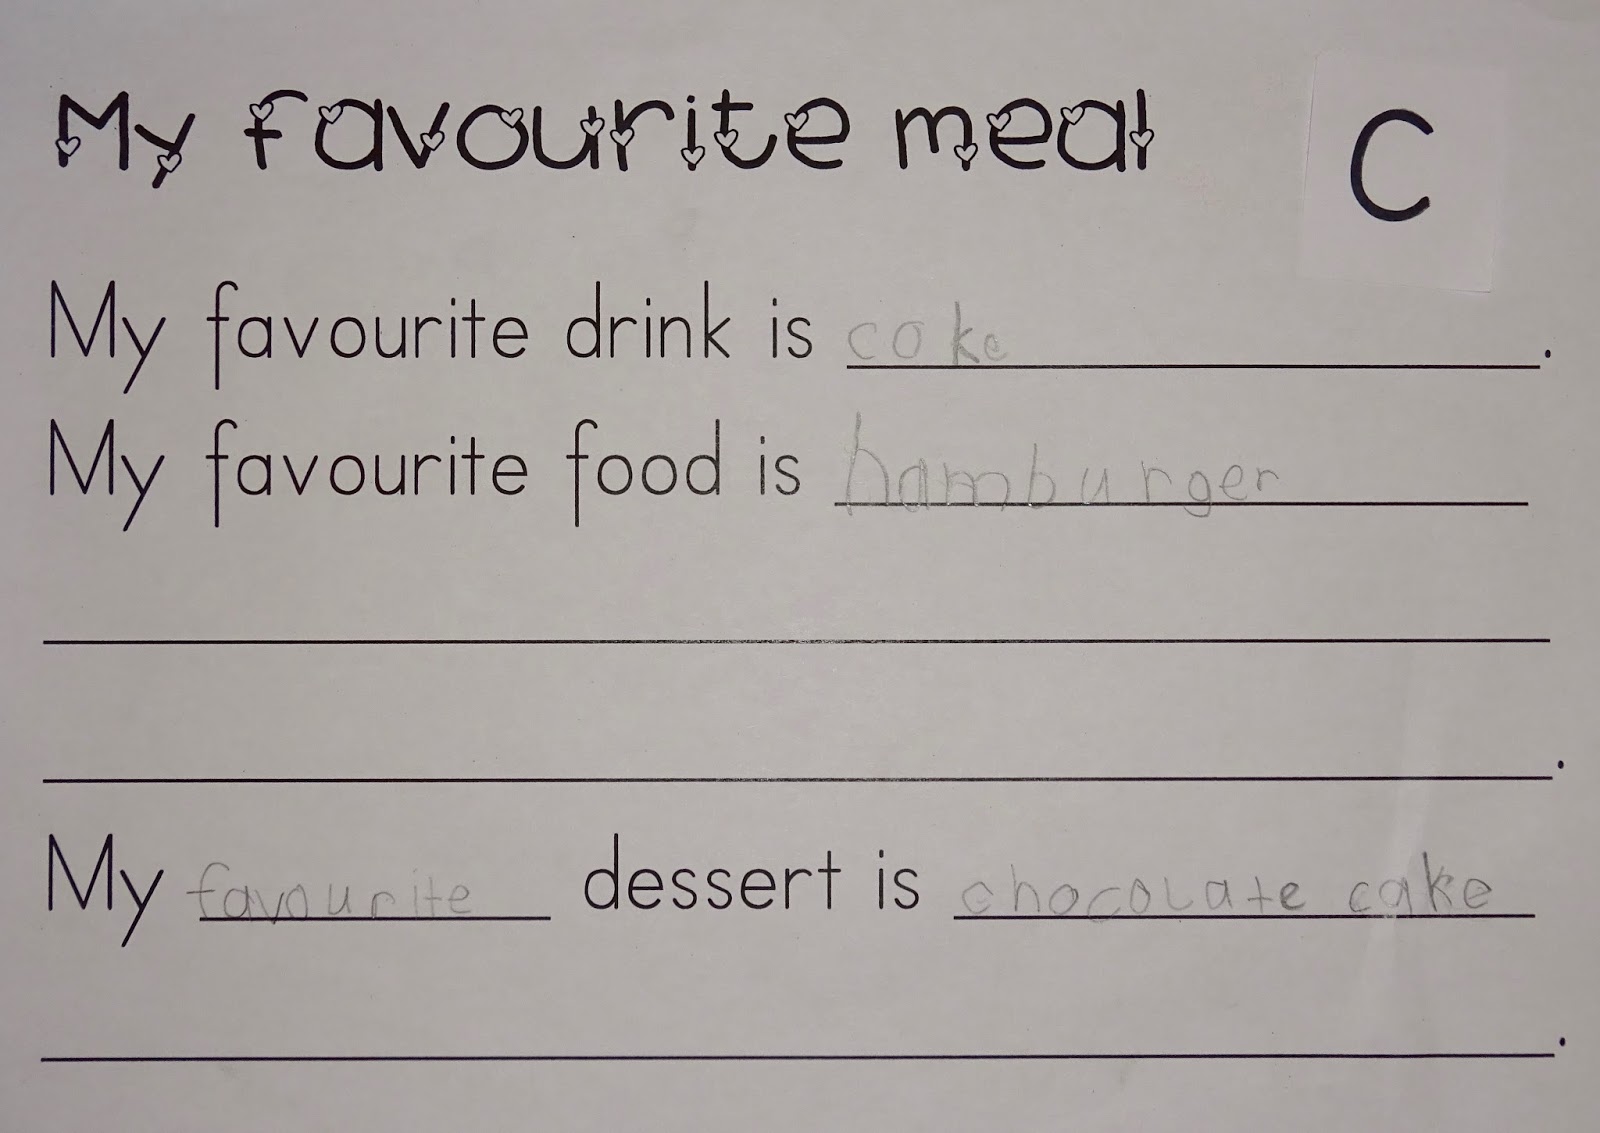 My favourite meal
C
My favourite drink is coke.
My favourite food is hamburger
.
My favourite dessert is chocolate cake
.